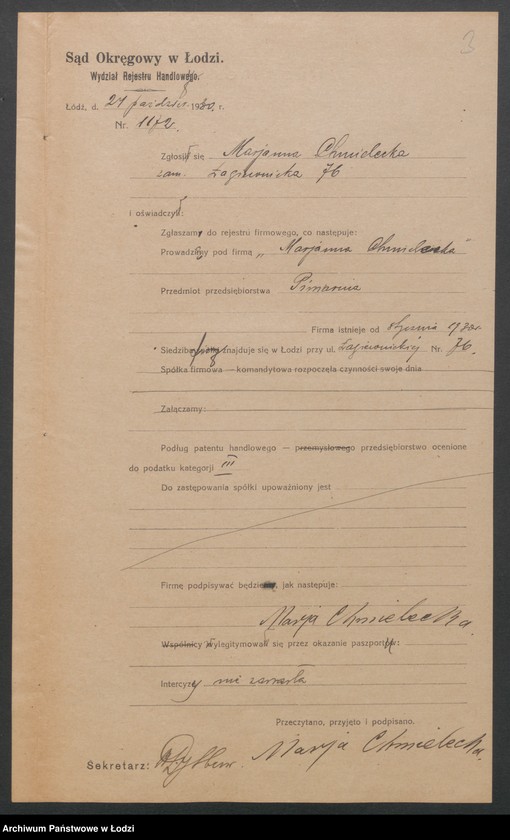 3
Sąd Okręgowy w Łodzi.
Wydział Rejestru Handlowego.
Łódź, d. 24 paździer. 1920. r.
Nr. 1172.
Zgłosił się Marjanna Chmielecka
zam. Łagiewnicka 76
i oświadczył:
Zgłaszam do rejestru firmowego, co następuje:
Prowadzę pod firmą „Marjanna Chmielecka"
Przedmiot przedsiębiorstwa Piwiarnia
Firma istnieje od stycznia 1920r.
Siedziba znajduje się w Łodzi przy ul. Łagiewnickiej Nr. 76.
Spółka firmowa — komandytowa rozpoczęła czynności swoje dnia
Załączamy:
Podług patentu handlowego — przemysłowego przedsiębiorstwo ocenione
do podatku kategorji III
Do zastępowania spółki upoważniony jest
Firmę podpisywać będzie, jak następuje:
Marja Chmielecka
Wspólnicy wylegitymowali się przez okazanie paszportów:
Intercyzy nie zawarła
Przeczytano, przyjęto i podpisano.
Sekretarz: Marja Chmielecka.
Archiwum Państwowe w Łodzi